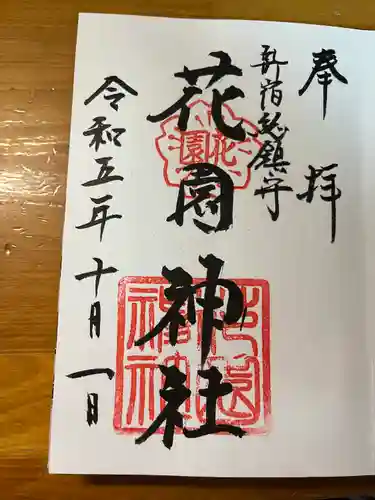 奉拝
新宿総鎮守
花園神社
花園
令和五年十月一日